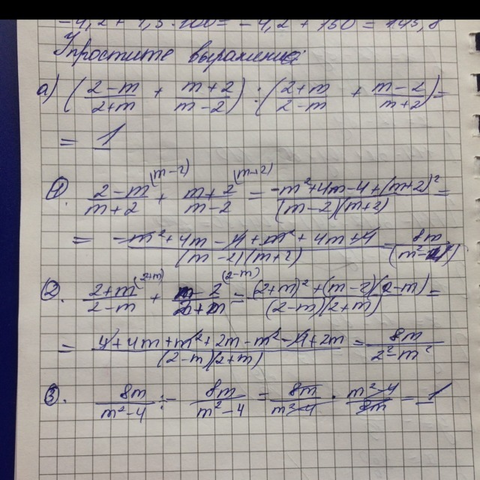 -4,2 + 1,5 · 100 = -4,2 + 150 = 145,8
Упростите выражение:
а) ( (2-m)/(2+m) + (m+2)/(m-2) ) : ( (2+m)/(2-m) + (m-2)/(m+2) ) =
= 1
1. (2-m)/(m+2) (m-2) + (m+2)/(m-2) (m+2) = (-m²+4m-4+(m+2)²)/((m-2)(m+2)) =
= (-m²+4m-4+m²+4m+4)/((m-2)(m+2)) = 8m/(m²-4)
2. (2+m)/(2-m) (2+m) + (m-2)/(2+m) (2-m) = ((2+m)²+(m-2)(2-m))/((2-m)(2+m)) =
= (4+4m+m²+2m-m²-4+2m)/((2-m)(2+m)) = 8m/(2²-m²)
3. 8m/(m²-4) : - 8m/(m²-4) = 8m/(m²-4) · (m²-4)/8m = 1